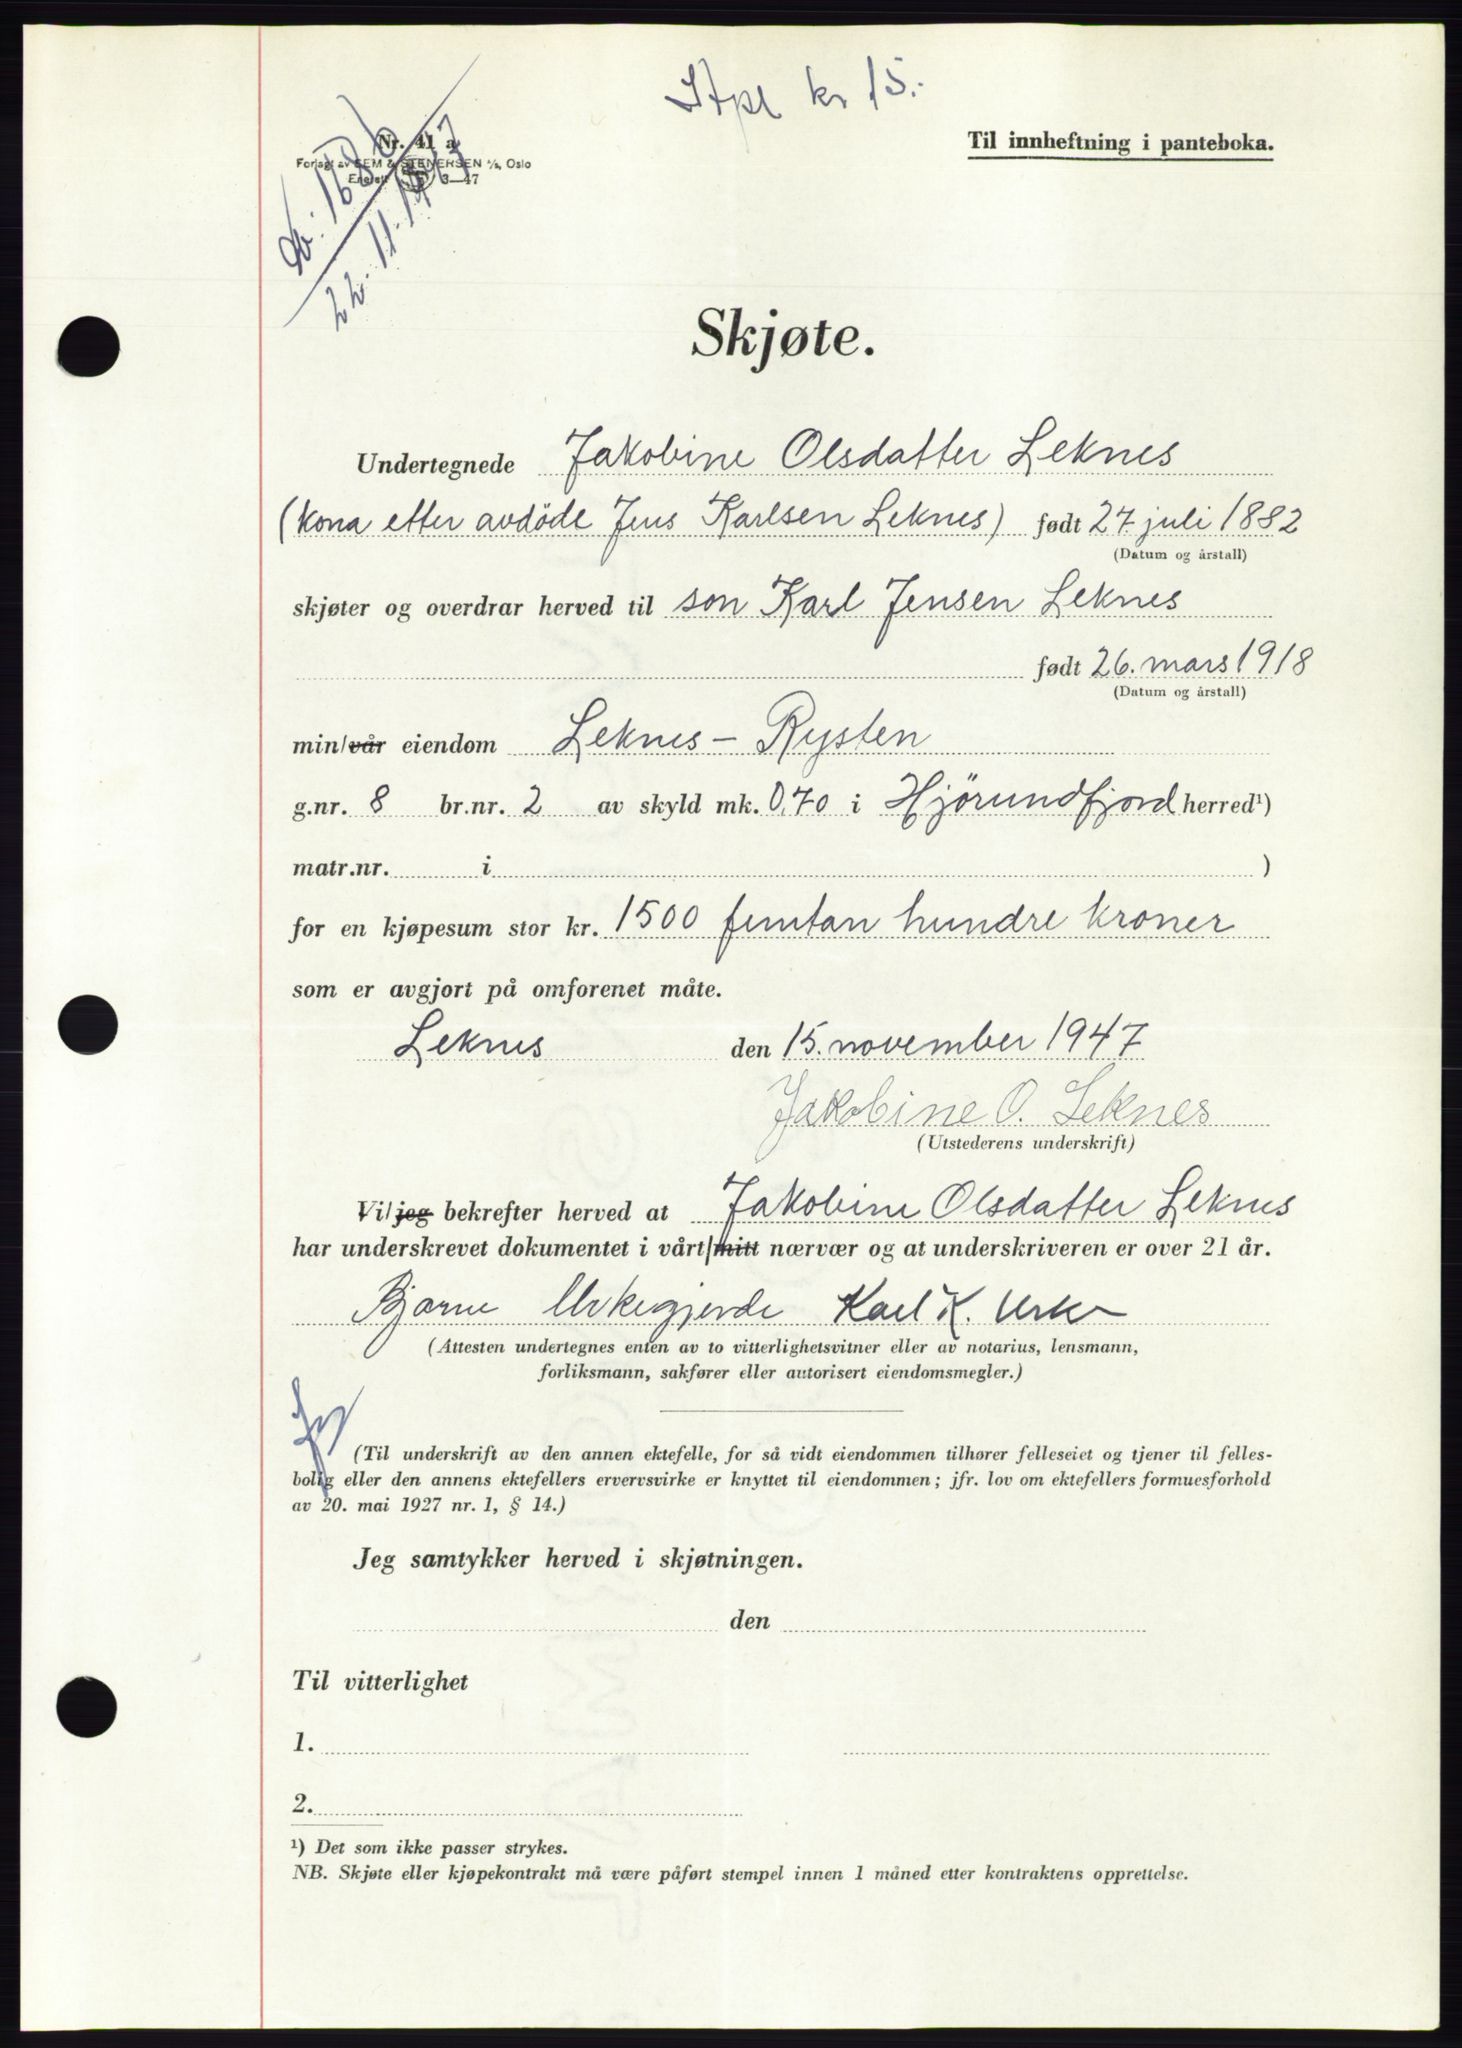 Stpl kr 15.-
Nr. 41 a
Forlagt av SEM & STENERSEN A/s, Oslo
Enerett 3—47
Til innheftning i panteboka.
22. 11. 1947
Skjøte.
Undertegnede Jakobine Olsdatter Leknes
(kona etter avdöde Jens Karlsen Leknes) født 27. juli 1882
(Datum og årstall)
skjøter og overdrar herved til son Karl Jensen Leknes
født 26. mars 1918
(Datum og årstall)
min/vår eiendom Leknes - Rysten
g.nr. 8 br.nr. 2 av skyld mk. 0,70 i Hjörundfjord herred¹)
matr.nr. i )
for en kjøpesum stor kr. 1500 femtan hundre kroner
som er avgjort på omforenet måte.
Leknes den 15. november 1947
Jakobine O. Leknes
(Utstederens underskrift)
Vi/jeg bekrefter herved at Jakobine Olsdatter Leknes
har underskrevet dokumentet i vårt/mitt nærvær og at underskriveren er over 21 år.
Bjarne Urkegjerde Karl K. Urke
(Attesten undertegnes enten av to vitterlighetsvitner eller av notarius, lensmann,
forliksmann, sakfører eller autorisert eiendomsmegler.)
(Til underskrift av den annen ektefelle, for så vidt eiendommen tilhører felleseiet og tjener til felles-
bolig eller den annens ektefellers ervervsvirke er knyttet til eiendommen; jfr. lov om ektefellers formuesforhold
av 20. mai 1927 nr. 1, § 14.)
Jeg samtykker herved i skjøtningen.
den
Til vitterlighet
1.
2.
¹) Det som ikke passer strykes.
NB. Skjøte eller kjøpekontrakt må være påført stempel innen 1 måned etter kontraktens opprettelse.